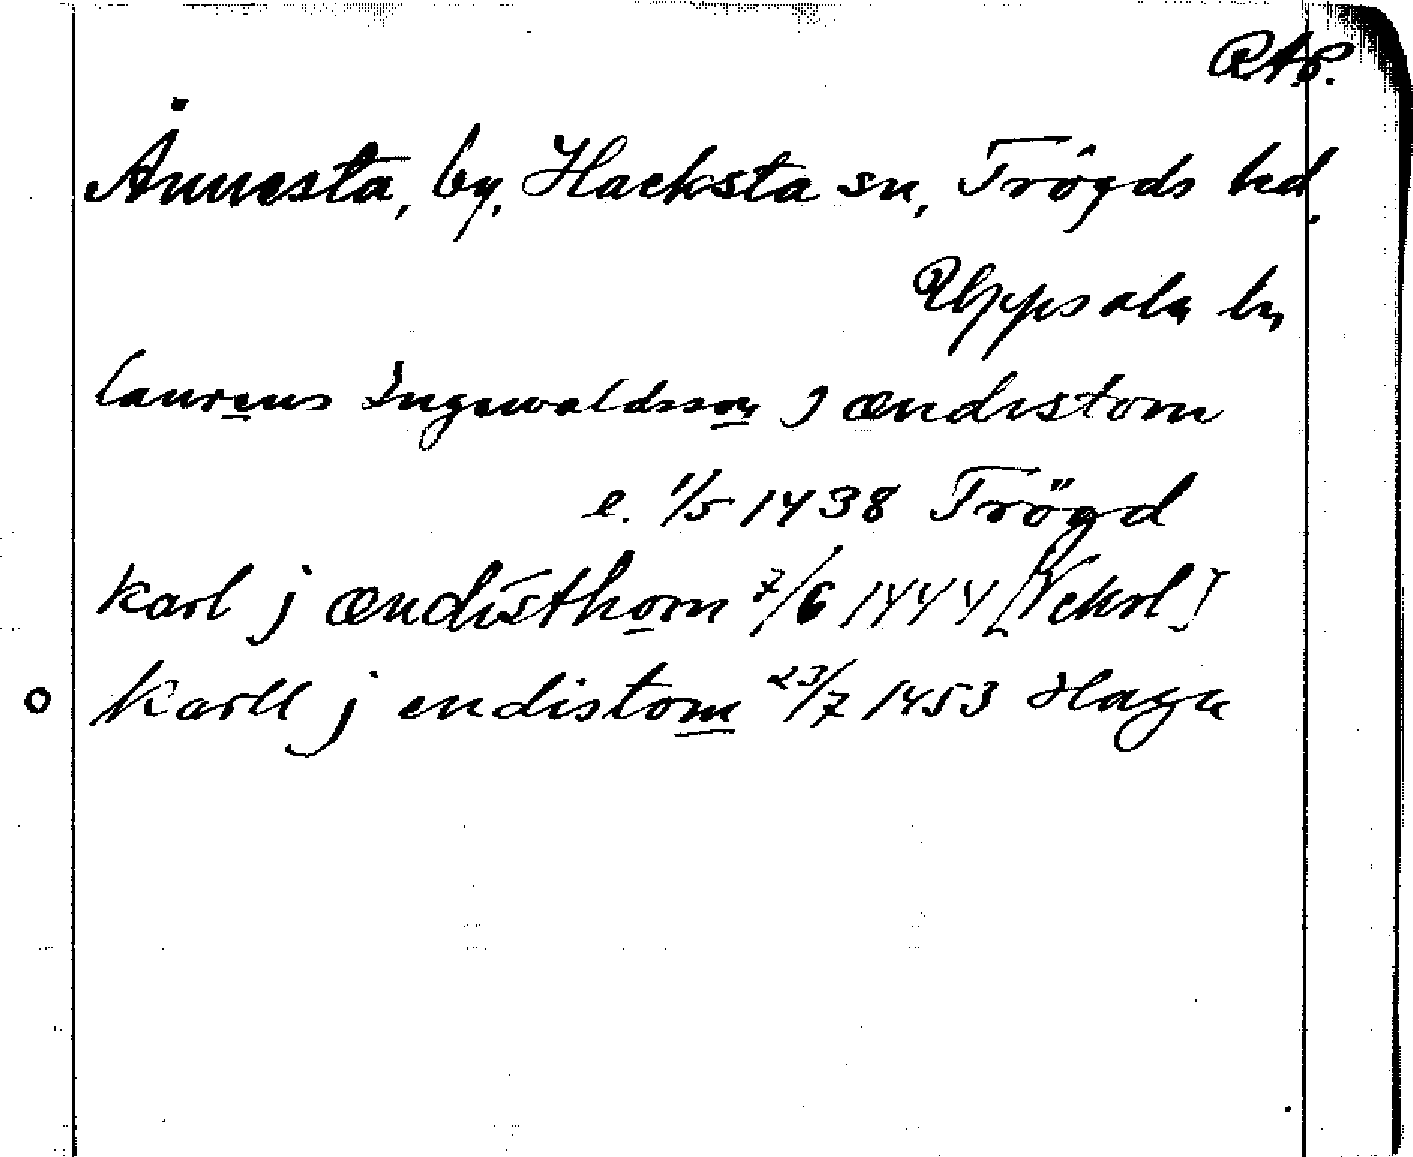 RAp.
Ånnesta, by, Hacksta sn, Trögds hd,
Uppsala ln
laurens Ingewaldsson j ændistom
e. 1/5 1438 Trögd
karl j ændisthom 7/6 1444 [Vckol]
o karll j endistom 23/7 1453 Haga